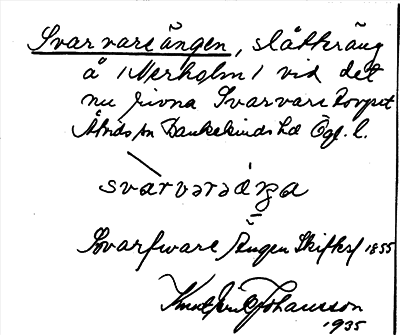 Svarvareängen, slåtteräng
å (Merholm) vid det
nu rivna Svarvaretorpet
Åtvids sn Bankekinds hd Ög. l.
svàrvərəáŋa
Svarfware Ängen Skifteskl 1855
Knut Erik Johansson
1935